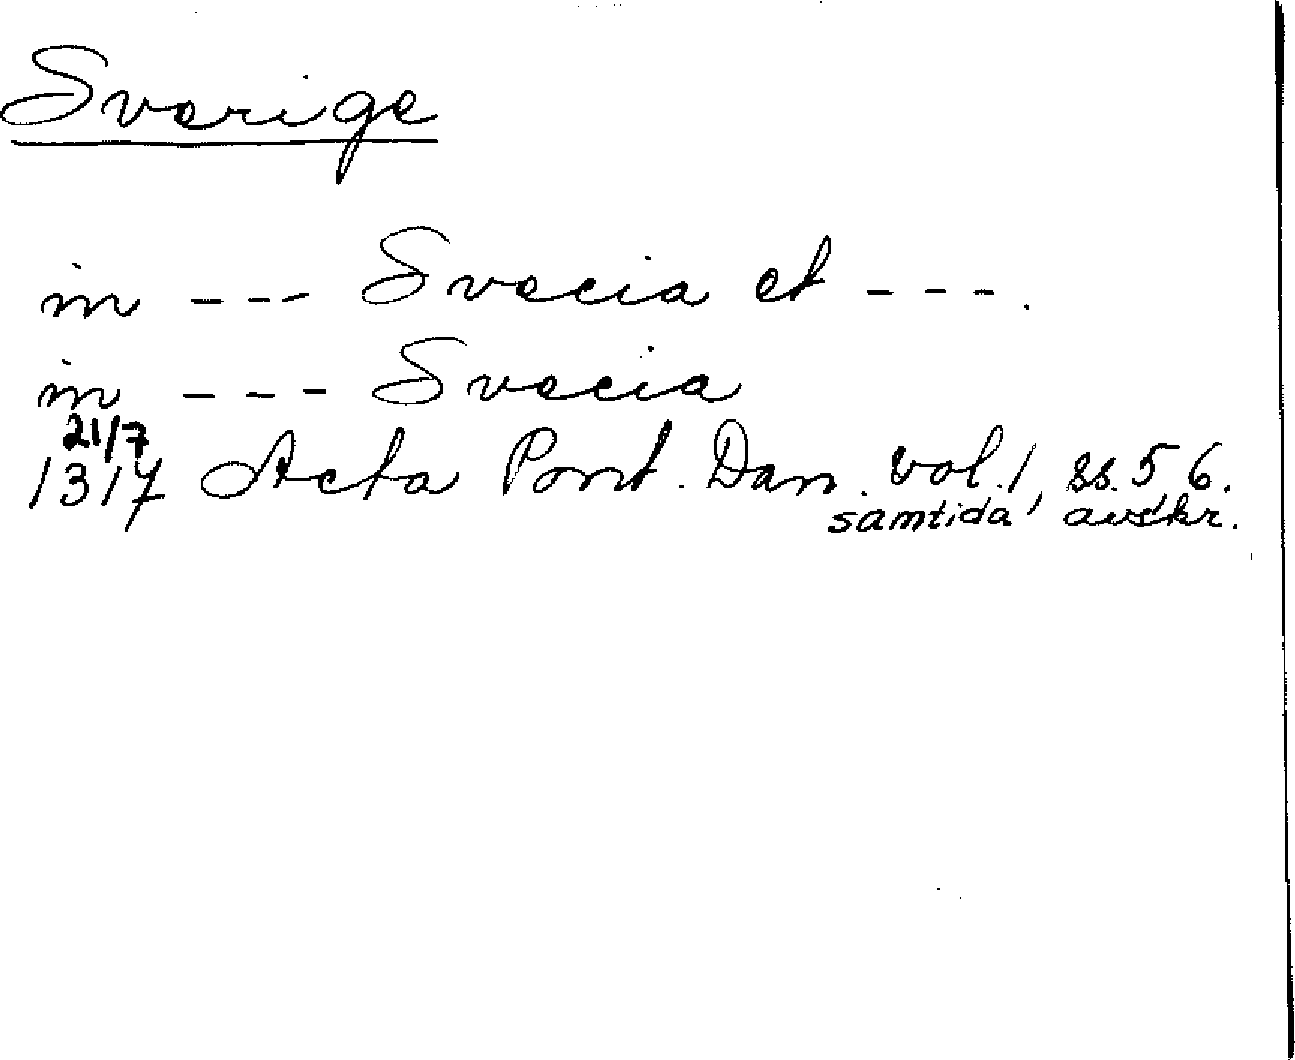 Sverige
in --- Svecia et ---.
in --- Svecia
21/7
1317 Acta Pont. Dan. vol. 1, ss. 5, 6.
samtida avskr.